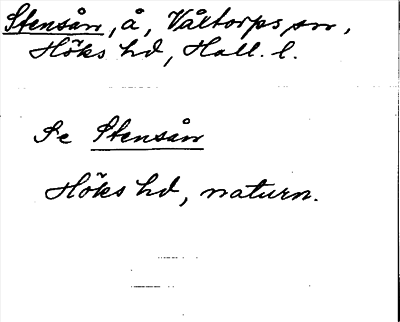 Stensån, å, Våltorps sn,
Höks hd, Hall. l.
Se Stensån
Höks hd, naturn.